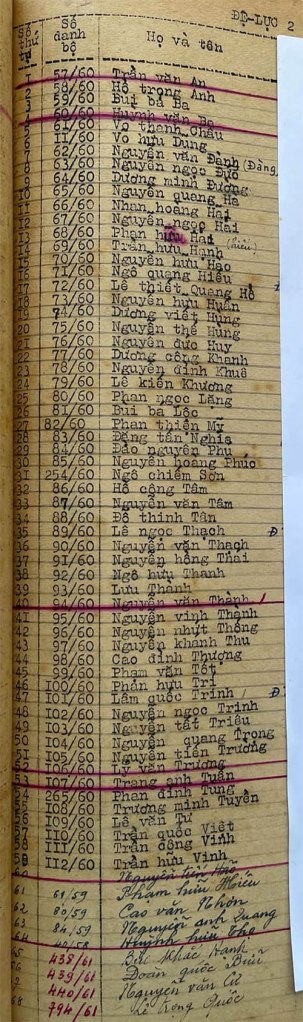 ĐỆ-LỤC 2
Số thứ tự Số danh bộ Họ và tên
1 57/60 Trần văn An
2 58/60 Hồ trọng Anh
3 59/60 Bùi bá Ba
4 60/60 Huỳnh văn Ba
5 61/60 Võ thanh Châu
6 II/60 Võ hữu Dung
7 62/60 Nguyễn văn Đành (Đàng)
8 63/60 Nguyễn ngọc Đực
9 64/60 Dương minh Đương
10 65/60 Nguyễn quang Hà
11 66/60 Nhan hoàng Hai
12 67/60 Nguyễn ngọc Hai
13 68/60 Phan hữu Hai
14 69/60 Trần hữu Hạnh (hiếu)
15 70/60 Nguyễn hữu Hạo
16 71/60 Ngô quang Hiếu
17 72/60 Lê thiết Quang Hổ
18 73/60 Nguyễn hữu Huân
19 74/60 Dương viết Hùng
20 75/60 Nguyễn thế Hùng
21 76/60 Nguyễn đức Huy
22 77/60 Dương công Khanh
23 78/60 Nguyễn đình Khuê
24 79/60 Lê kiến Khương
25 80/60 Phan ngọc Lặng
26 81/60 Bùi bá Lộc
27 82/60 Phan thiện Mỹ
28 83/60 Đặng tấn Nghis
29 84/60 Đào nguyên Phụ
30 85/60 Nguyễn hoàng Phúc
31 254/60 Ngô chiếm Sơn
32 86/60 Hồ công Tâm
33 87/60 Nguyễn văn Tâm
34 88/60 Đỗ thinh Tân
35 89/60 Lê ngọc Thạch Đ
36 90/60 Nguyễn văn Thạch
37 91/60 Nguyễn hồng Thái
38 92/60 Ngô hữu Thanh
39 93/60 Lưu Thành
40 94/60 Nguyễn văn Thành
41 95/60 Nguyễn vinh Thành
42 96/60 Nguyễn nhựt Thống
43 97/60 Nguyễn khánh Thu
44 98/60 Cao đình Thượng
45 99/60 Phạm văn Tốt
46 I00/60 Phan hữu Trí
47 I01/60 Lâm quốc Trinh Đ
48 I02/60 Nguyễn ngọc Trinh
49 I03/60 Nguyễn tất Triêu
50 I04/60 Nguyễn quang Trọng
51 I05/60 Nguyễn tiến Trương
52 I06/60 Lý văn Trương
53 I07/60 Trang anh Tuấn
54 265/60 Phan đình Tùng
55 I08/60 Trương minh Tuyền
56 I09/60 Lê văn Tư
57 II0/60 Trần quốc Việt
58 III/60 Trần công Vinh
59 II2/60 Trần hữu Vinh
60 Nguyễn
61 61/59 Phạm hữu Hiếu
62 80/59 Cao văn Nhơn
63 84/59 Nguyễn anh Quang
64 Huỳnh hữu Thọ
65 438/61 Bùi khắc Hanh
66 439/61 Đoàn quốc Bửu
67 440/61 Nguyễn văn Cử
68 794/61 Lê trọng Quốc